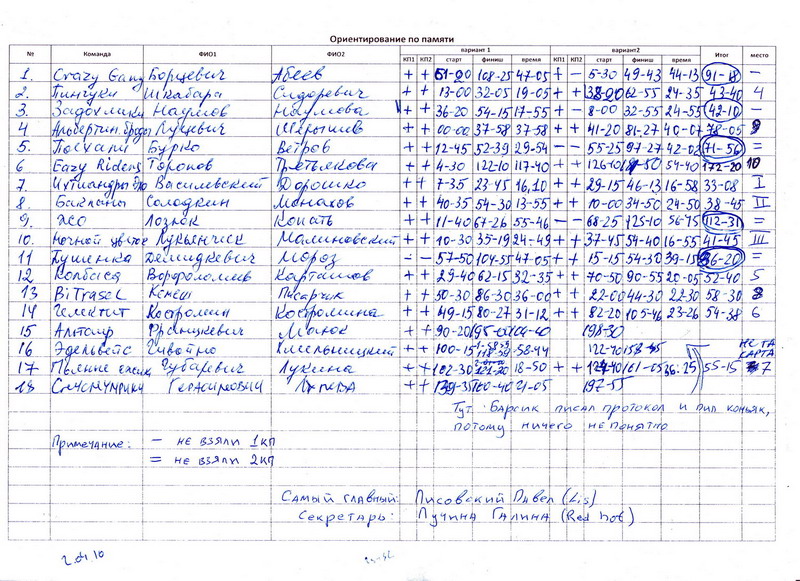 Ориентирование по памяти
№ Команда ФИО1 ФИО2 вариант 1 вариант2 Итог место
КП1 КП2 старт финиш время КП1 КП2 старт финиш время
1. Crazy Gang Борцевич Абеев + + 51-20 108-25 47-05 + - 5-30 49-43 44-13 91-18 —
2. Пинчуки Шкабара Сидоревич + + 13-00 32-05 19-05 + + 38-00 62-55 24-35 43-40 4
3. Задохлики Наумов Наумова + + 36-20 54-15 17-55 + - 8-00 32-55 24-55 42-10 —
4 Луцевич + + 00-00 37-58 37-58 + + 41-20 81-27 40-07 78-05 9
5. Поехали Бурко Ветров + + 12-45 52-39 29-54 - - 55-25 97-27 42-02 71-56 =
6 Eazy Riders Торопов Третьякова + + 4-30 122-10 117-40 + + 126-10 54-40 172-20 10
7. Василевский Дорошко + + 7-35 23-45 16,10 + + 29-15 46-13 16-58 33-08 I
8. Бакланы Солодкин Монахов + + 40-35 54-30 13-55 + + 10-00 34-50 24-50 38-45 II
9. Лозюк Копать + + 11-40 67-26 55-46 - - 68-25 125-10 56-45 112-31 =
10. Ночной цветок Лукьянчик Малиновский + + 10-30 35-19 24-49 + + 37-45 54-40 16-55 41-45 III
11 Душенка Демидкевич Мороз - - 57-50 104-55 47-05 + + 15-15 54-30 39-15 86-20 =
12 Колбаса Ворфоломеев Карташов + + 29-40 62-15 32-35 + + 70-50 90-55 20-05 52-40 5
13 BiTrasel Кенеш Писарчик + + 50-30 86-30 36-00 + + 22-00 44-30 22-30 58-30 8
14 Костромин Костромина + + 49-15 80-27 31-12 + + 82-20 105-46 23-26 54-38 6
15 Францкевич Манюк + + 90-20 198-30
16 Эдельвейс Хмельницкий + + 100-15 58-44 122-40 НЕ ТА КАРТА
17 Губаревич Лукина + + 102-30 18-50 + + 161-05 36-25 55-15 7
18 Герасимович + + 21-05 197-55
Тут Барсик писал протокол и пил коньяк,
потому ничего не понятно
Примечание: — не взяли 1КП
= не взяли 2КП
Самый главный: Лисовский Павел (Lis)
Секретарь: Лучина Галина (Red hot)
2.04.10